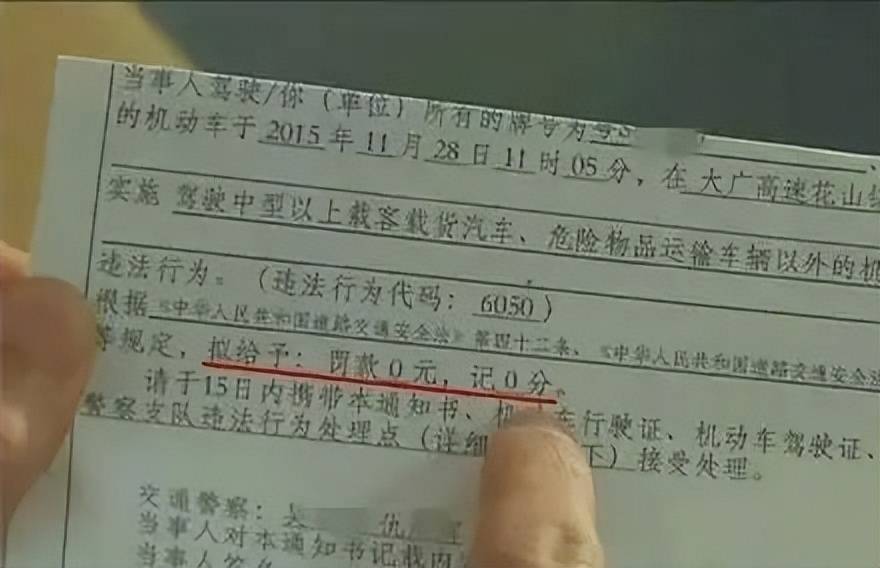 当事人驾驶/你（单位）所有的牌号为粤S
的机动车于 2015 年 11 月 28 日 11 时 05 分，在 大广高速花山
实施 驾驶中型以上载客载货汽车、危险物品运输车辆以外的机
违法行为。（违法行为代码：6050）
根据《中华人民共和国道路交通安全法》第四十二条、《中华人民共和国道路交通安全法
等规定，拟给予：罚款 0 元，记 0 分。
请于15日内携带本通知书、机动车行驶证、机动车驾驶证、
警察支队违法行为处理点（详细 下）接受处理。
交通警察：吴 仇
当事人对本通知书记载内
当事人签